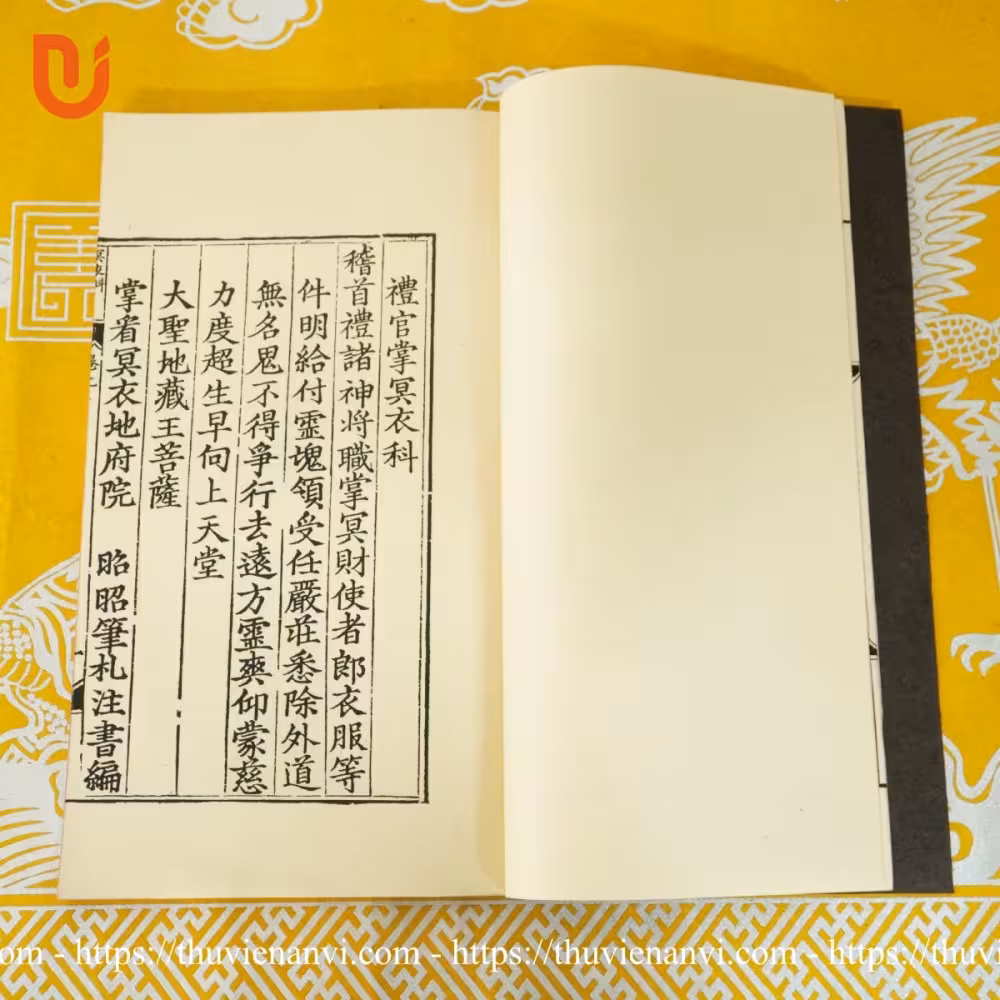 禮官掌冥衣科
稽首禮諸神将職掌冥財使者郎衣服等
件明給付霊塊領受任嚴莊悉除外道
無名鬼不得爭行去遠方霊爽仰蒙慈
力度超生早向上天堂
大聖地藏王菩薩
掌看冥衣地府院 昭昭筆札注書編
https://thuvienanvi.com - https://thuvienanvi.com - https://thuvi